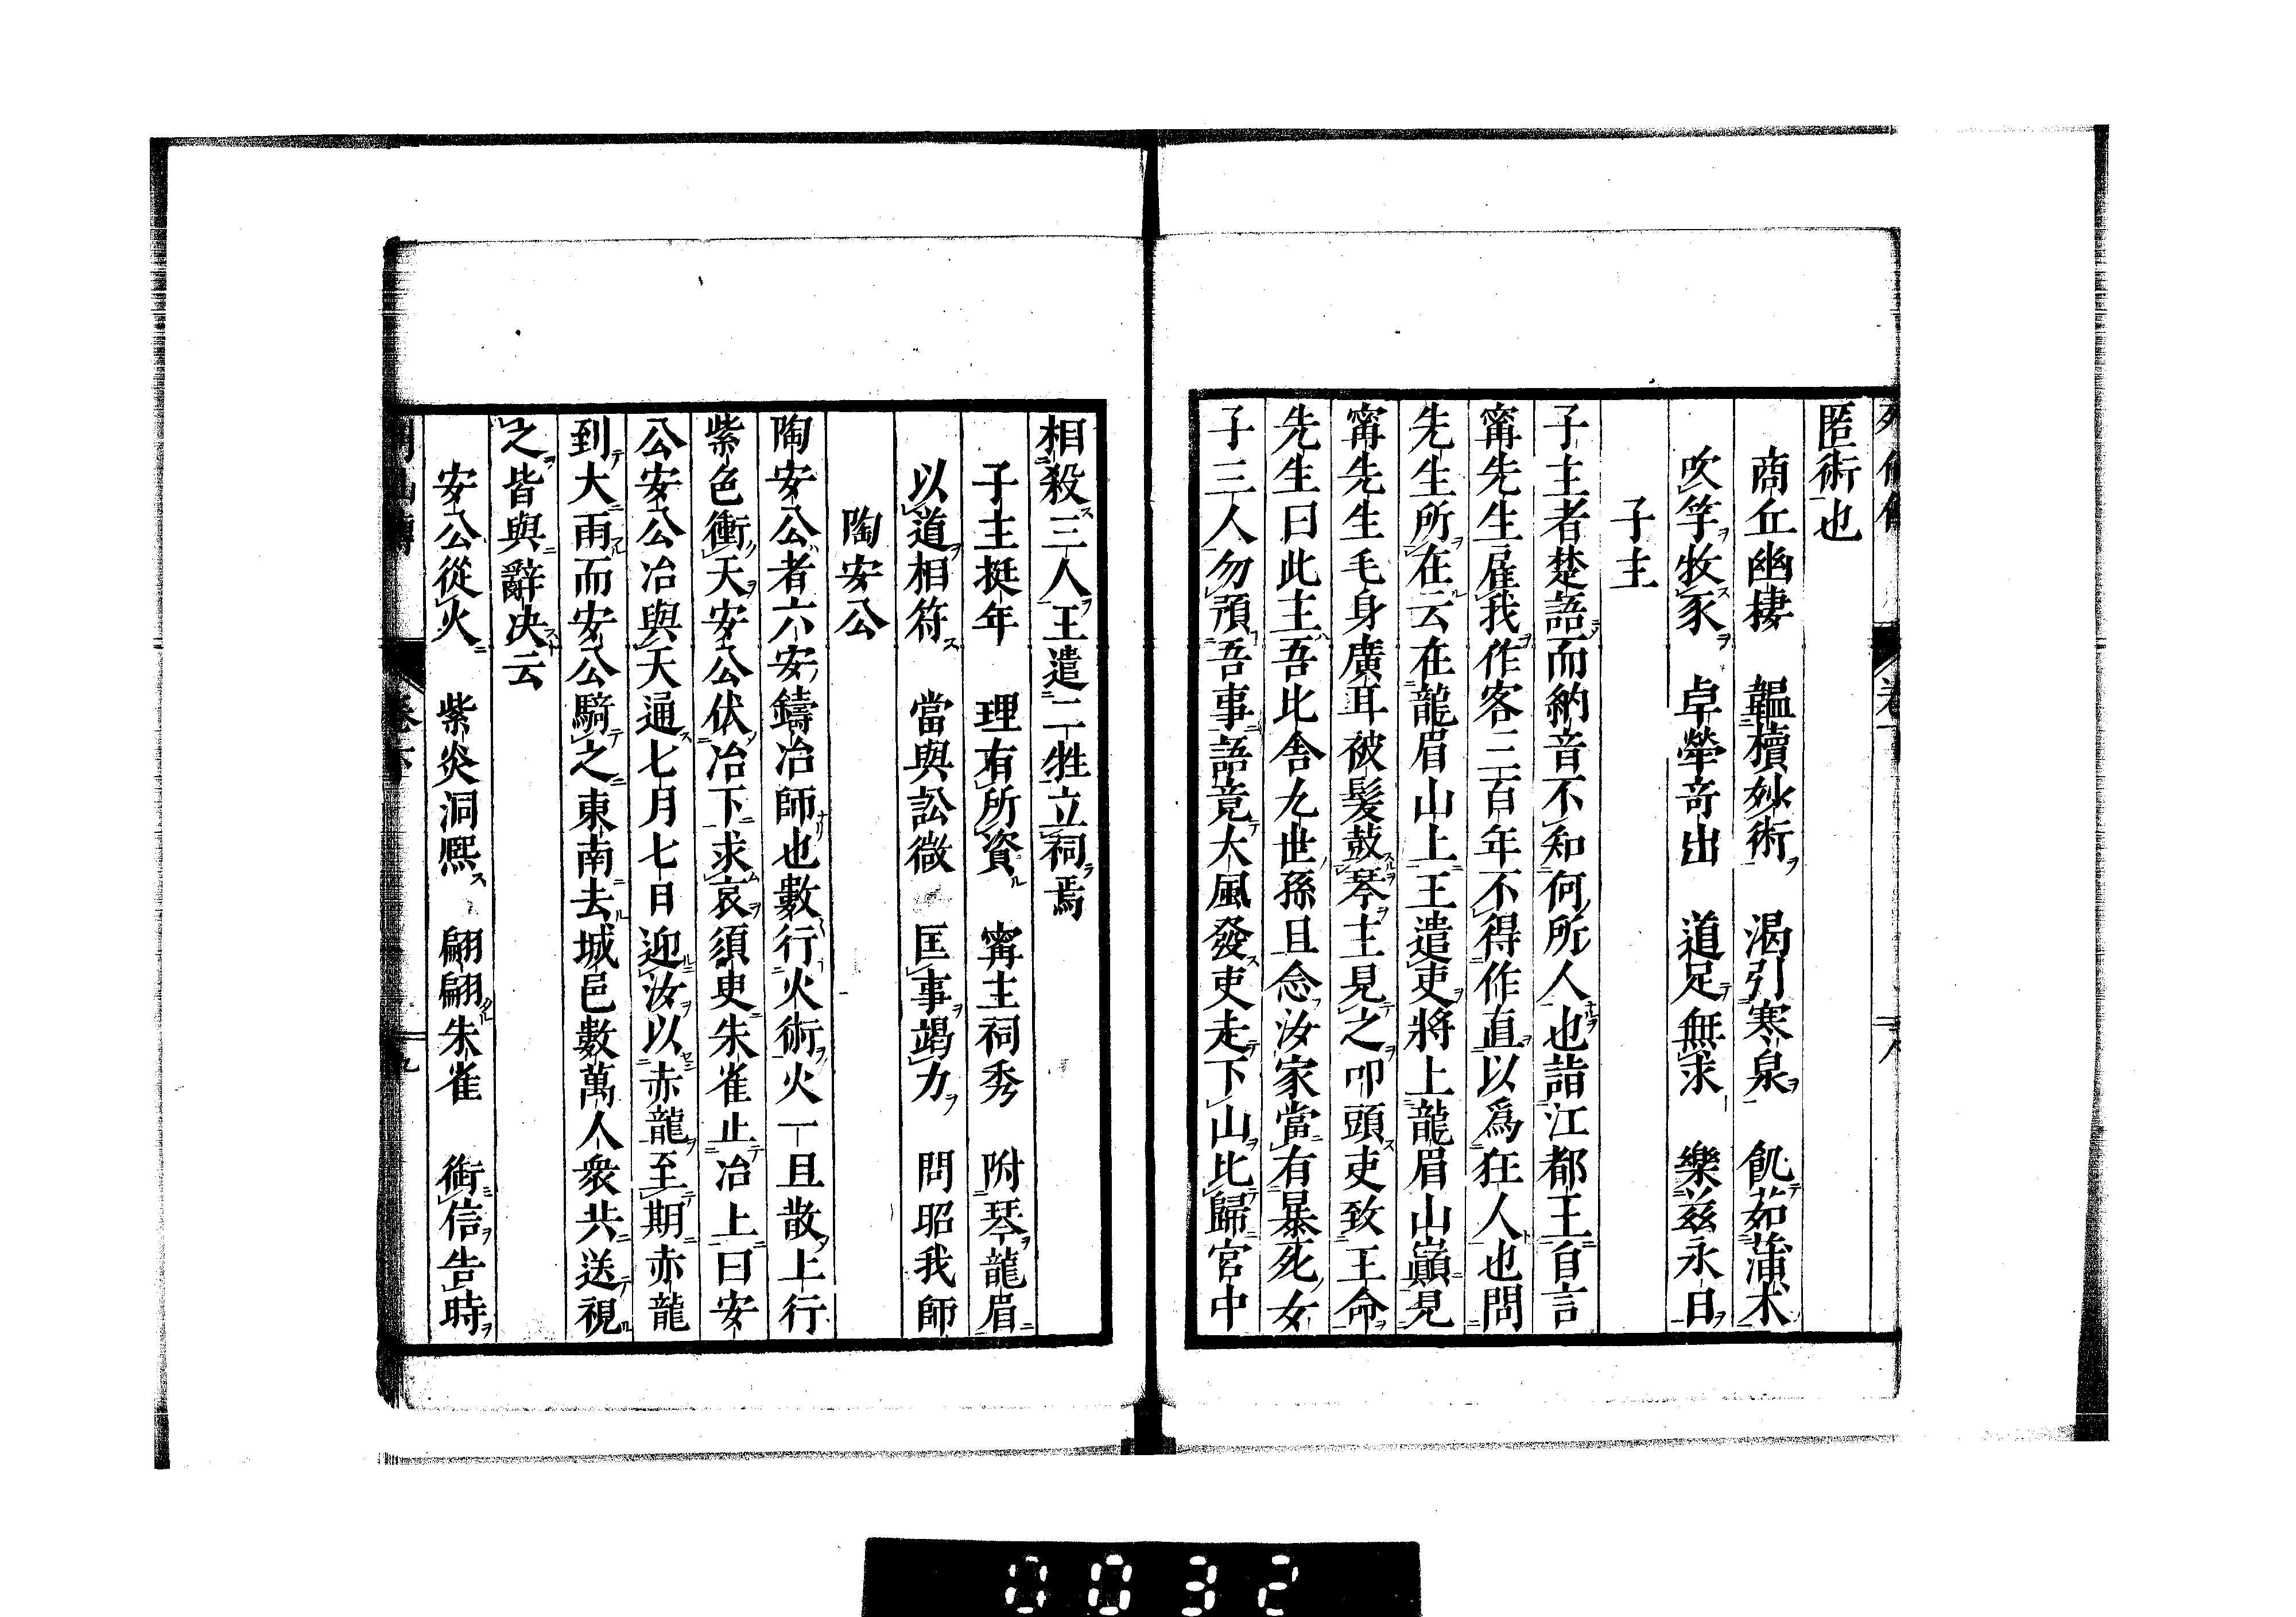 匿術也
商丘幽棲　韞櫝妙術　渴引寒泉　飢茹蒲朮
吹竽牧豕　卓犖奇出　道足無求　樂茲永日
子主
子主者楚語而納音不知何所人也詣江都王自言
甯先生雇我作客三百年不得作直以爲狂人也問
先生所在云在龍眉山上王遣吏將上龍眉山巔見
甯先生毛身廣耳被髮鼓琴主見之叩頭吏致王命
先生曰此主吾比舍九世孫且念汝家當有暴死女
子三人勿預吾事語竟大風發吏走下山比歸宮中
相殺三人王遣二牲立祠焉
子主挺年　理有所資　甯主祠秀　附琴龍眉
以道相符　當與訟微　匡事竭力　問昭我師
陶安公
陶安公者六安鑄冶師也數行火術火一旦散上行
紫色衝天安公伏冶下求哀須臾朱雀止冶上曰安
公安公冶與天通七月七日迎汝以赤龍至期赤龍
到大雨而安公騎之東南去城邑數萬人衆共送視
之皆與辭决云
安公從火　紫炎洞熙　翩翩朱雀　銜信告時
0032